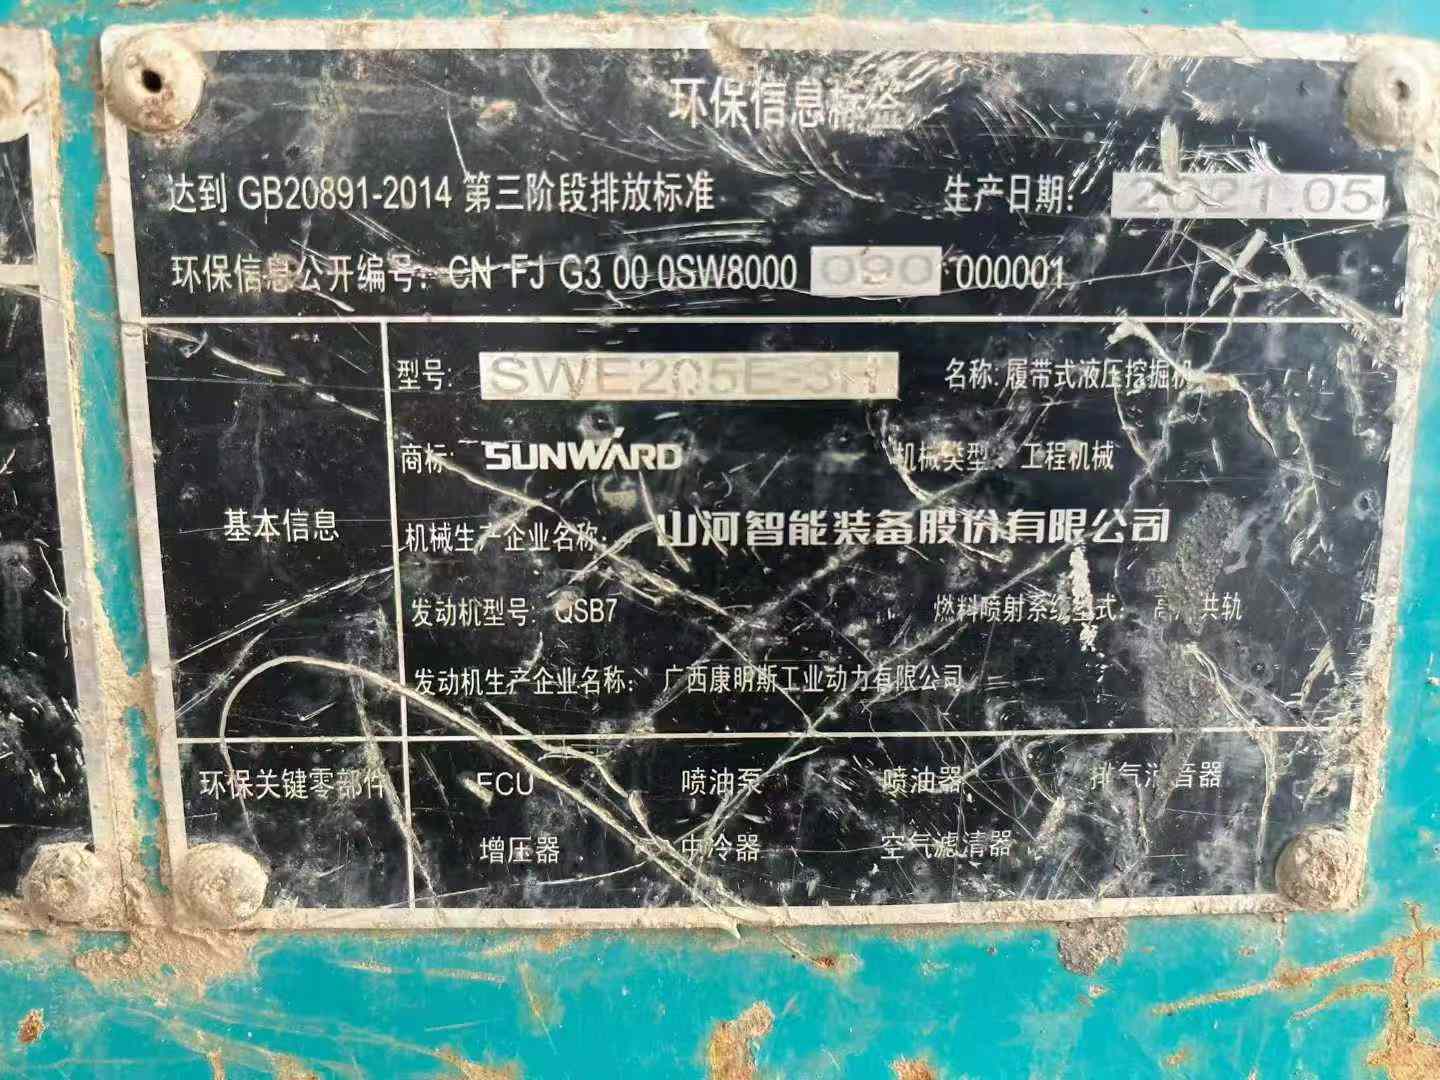 环保信息标签
达到 GB20891-2014 第三阶段排放标准 生产日期: 2021.05
环保信息公开编号: CN FJ G3 00 0SW8000 090 000001
型号: SWE205E-3H 名称: 履带式液压挖掘机
商标: SUNWARD 机械类型: 工程机械
基本信息
机械生产企业名称: 山河智能装备股份有限公司
发动机型号: QSB7 燃料喷射系统型式: 高 共轨
发动机生产企业名称: 广西康明斯工业动力有限公司
环保关键零部件 ECU 喷油泵 喷油器 排气消音器
增压器 中冷器 空气滤清器